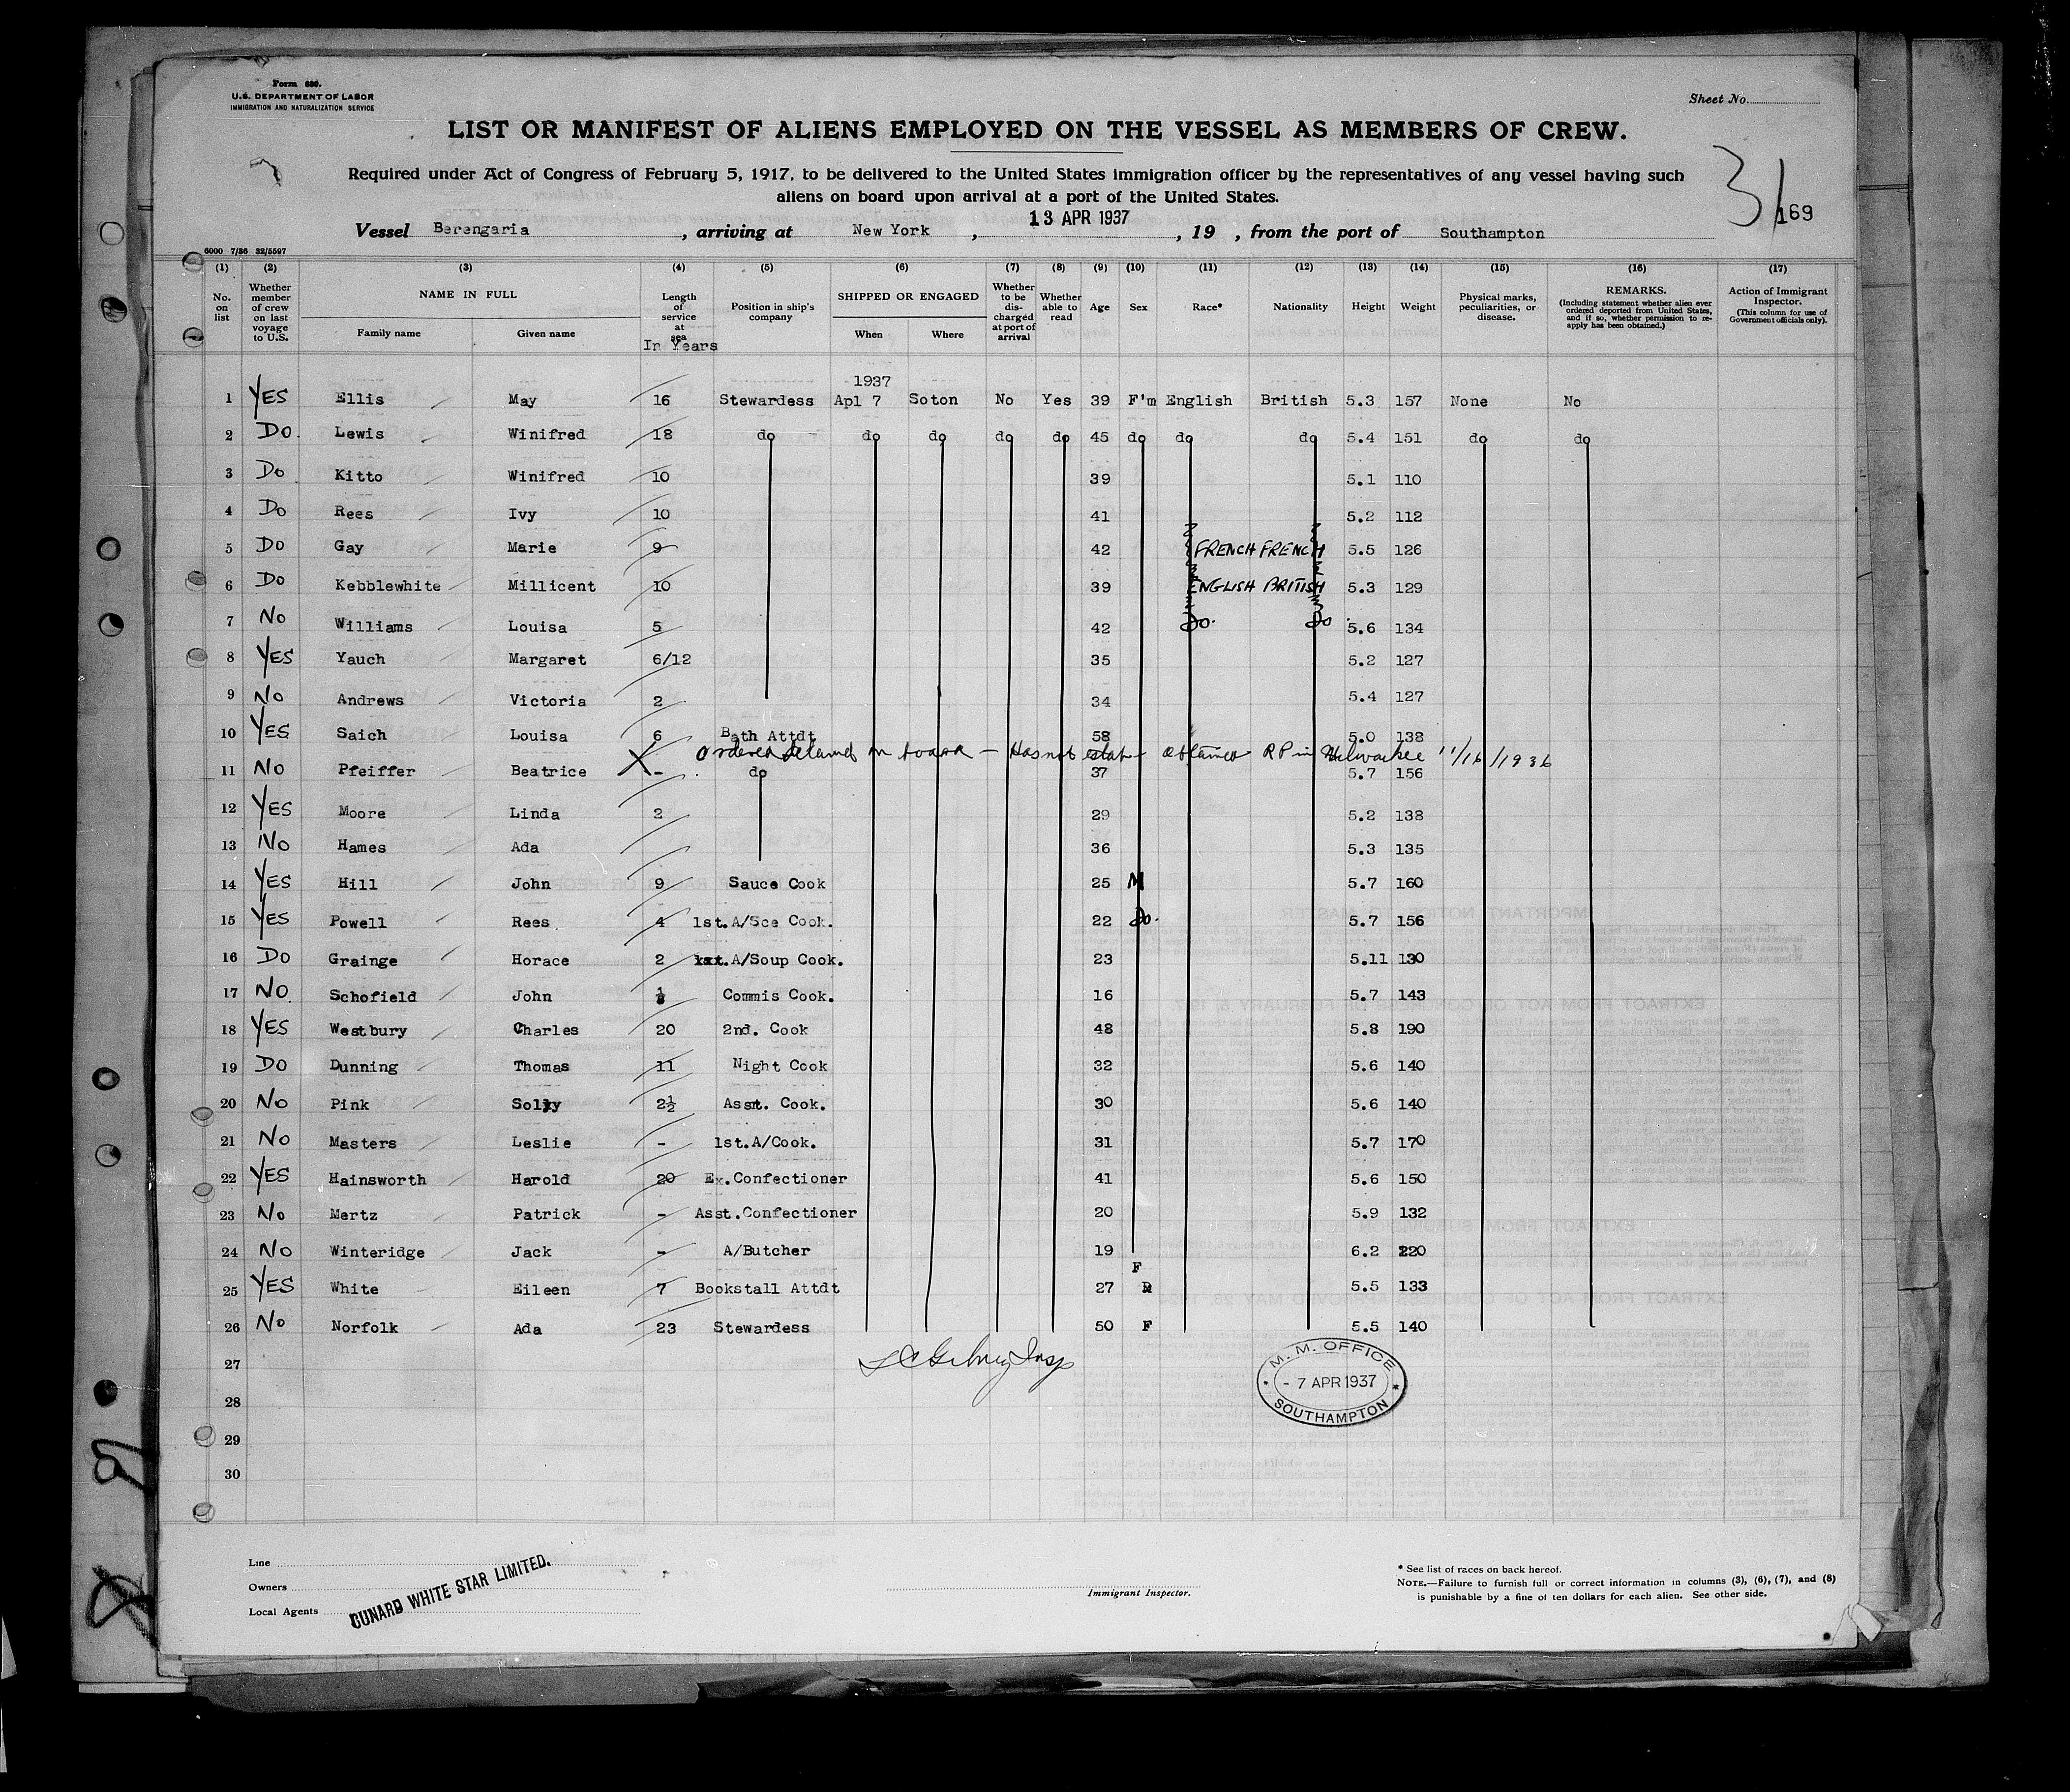 Form 680.
U.S. DEPARTMENT OF LABOR
IMMIGRATION AND NATURALIZATION SERVICE
Sheet No.
LIST OR MANIFEST OF ALIENS EMPLOYED ON THE VESSEL AS MEMBERS OF CREW.
Required under Act of Congress of February 5, 1917, to be delivered to the United States immigration officer by the representatives of any vessel having such
aliens on board upon arrival at a port of the United States.
3/169
13 APR 1937
Vessel Berengaria, arriving at New York, , 19 , from the port of Southampton
6000 7/36 32/5597
(1) (2) (3) (4) (5) (6) (7) (8) (9) (10) (11) (12) (13) (14) (15) (16) (17)
No. on list
Whether member of crew on last voyage to U.S.
NAME IN FULL
Family name Given name
Length of service at sea
In Years
Position in ship's company
SHIPPED OR ENGAGED
When Where
Whether to be discharged at port of arrival
Whether able to read
Age
Sex
Race*
Nationality
Height
Weight
Physical marks, peculiarities, or disease.
REMARKS.
(Including statement whether alien ever ordered deported from United States, and if so, whether permission to re-apply has been obtained.)
Action of Immigrant Inspector.
(This column for use of Government officials only).
1937
1 YES Ellis May 16 Stewardess Apl 7 Soton No Yes 39 F'm English British 5.3 157 None No
2 Do. Lewis Winifred 18 do do do do do 45 do do do 5.4 151 do do
3 Do Kitto Winifred 10 39 5.1 110
4 Do Rees Ivy 10 41 5.2 112
5 Do Gay Marie 9 42 FRENCH FRENCH 5.5 126
6 Do Kebblewhite Millicent 10 39 ENGLISH BRITISH 5.3 129
7 No Williams Louisa 5 42 Do. Do 5.6 134
8 YES Yauch Margaret 6/12 35 5.2 127
9 No Andrews Victoria 2 34 5.4 127
10 YES Saich Louisa 6 Bath Attdt 58 5.0 138
X Ordered detained on board — Has not obtained RP in Milwaukee 11/16/1936
11 No Pfeiffer Beatrice - do 37 5.7 156
12 YES Moore Linda 2 29 5.2 138
13 No Hames Ada 36 5.3 135
14 YES Hill John 9 Sauce Cook 25 M 5.7 160
15 YES Powell Rees 4 1st.A/Sce Cook. 22 Do. 5.7 156
16 Do Grainge Horace 2 1st.A/Soup Cook. 23 5.11 130
17 No Schofield John Commis Cook. 16 5.7 143
18 YES Westbury Charles 20 2nd. Cook 48 5.8 190
19 DO Dunning Thomas 11 Night Cook 32 5.6 140
20 No Pink Solly 2½ Asst. Cook. 30 5.6 140
21 No Masters Leslie - 1st.A/Cook. 31 5.7 170
22 YES Hainsworth Harold 20 Ex.Confectioner 41 5.6 150
23 No Mertz Patrick - Asst.Confectioner 20 5.9 132
24 No Winteridge Jack - A/Butcher 19 6.2 220
25 YES White Eileen 7 Bookstall Attdt 27 F 5.5 133
26 No Norfolk Ada 23 Stewardess 50 F 5.5 140
27
28
29
30
M. M. OFFICE
- 7 APR 1937
SOUTHAMPTON
Line
Owners
Local Agents
CUNARD WHITE STAR LIMITED.
Immigrant Inspector.
* See list of races on back hereof.
NOTE.—Failure to furnish full or correct information in columns (3), (6), (7), and (8)
is punishable by a fine of ten dollars for each alien. See other side.